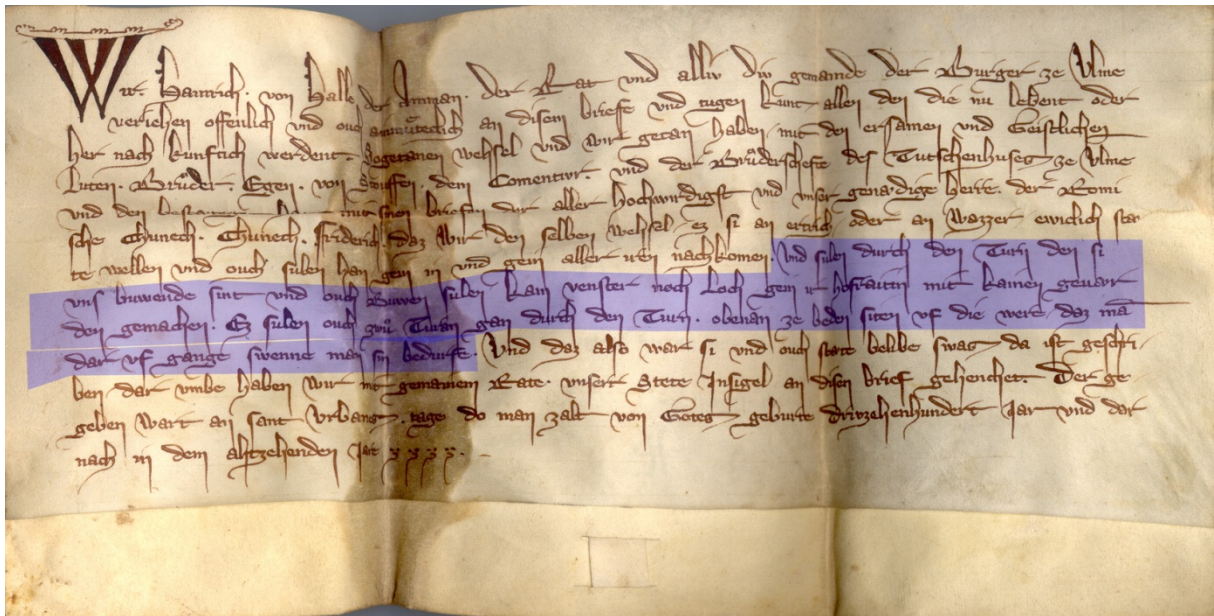 Wir Hainrich von Halle der Amman. Der Rat vnd alliv div gemainde der Burger ze Vlme
veriehen offenlich vnd ouch an disem briefe vnd tugen kunt allen den die nu lebent oder
her nach kunftich werdent. Sogetanen wehsel vnd wir getan haben mit den ersamen vnd Geistlichen
Luten. Bruͦder. Egen. von Stouffen. dem Comentiur vnd der Bruͤderschefte des Tutschenhuses ze Vlme
vnd den mit sinen briefen der aller hochwirdigst vnd vnser genaͤdige herre. der Romi
sche Chunech. Chunech. friderich. daz wir den selben wehsel ez si an ertrich oder an wazzer ewiclich staͤ
te wellen vnd ouch sulen han gein in vnd gein aller iren nachkomen. Vnd sulen durch den Turn den si
vns buwende sint vnd ouch Buwen sulen kain venster noch Loch gein ir hofraitin mit kainen geuaͤr
den gemachen. Ez sulen ouch zwuͦ Turan gan durch den Turn. obenan ze beden siten vf die were. daz mā
dar vf gange swenne man sin bedurfe. Vnd daz also war si vnd ouch staͤte belibe swas da ist geschri
ben dar vmbe haben wir mit gemainem Rate. vnserr Stete Insigel an disen brief gehenchet. Der ge
geben wart an sant Vrbans tage do man zalt von Gotes geburte driuzehenhundert Jar vnd dar
nach in dem ahtzehenden Jar